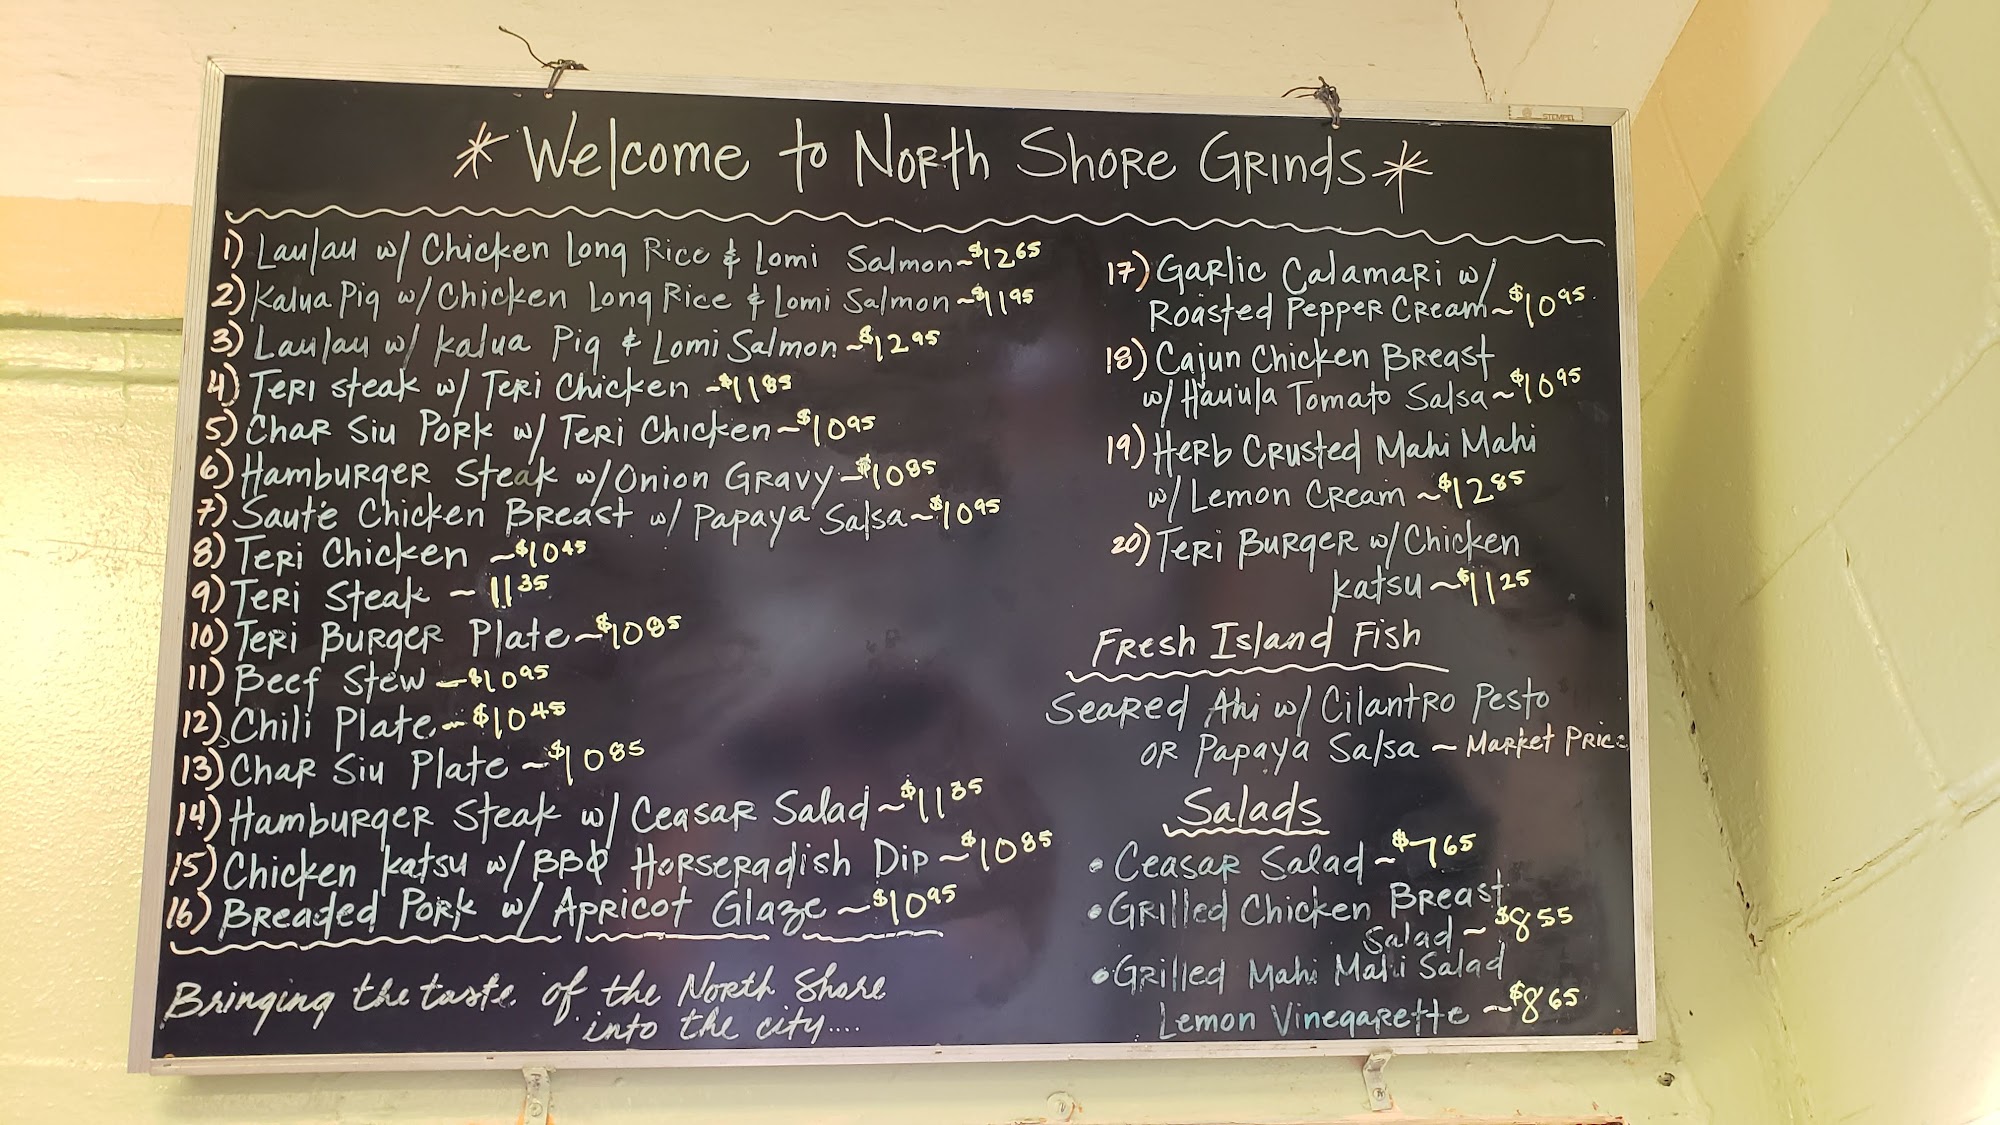 * Welcome to North Shore Grinds *
1) Laulau w/ Chicken Long Rice & Lomi Salmon ~ $12 65
2) Kalua Pig w/ Chicken Long Rice & Lomi Salmon ~ $11 95
3) Laulau w/ kalua Pig & Lomi Salmon ~ $12 95
4) Teri steak w/ Teri Chicken ~ $11 85
5) Char Siu Pork w/ Teri Chicken ~ $10 95
6) Hamburger Steak w/ Onion Gravy ~ $10 85
7) Sauté Chicken Breast w/ Papaya Salsa ~ $10 95
8) Teri Chicken ~ $10 45
9) Teri Steak ~ 11 35
10) Teri Burger Plate ~ $10 85
11) Beef Stew ~ $10 95
12) Chili Plate ~ $10 45
13) Char Siu Plate ~ $10 85
14) Hamburger Steak w/ Ceasar Salad ~ $11 35
15) Chicken katsu w/ BBQ Horseradish Dip ~ $10 85
16) Breaded Pork w/ Apricot Glaze ~ $10 95
Bringing the taste of the North Shore
into the city....
17) Garlic Calamari w/
Roasted Pepper Cream ~ $10 95
18) Cajun Chicken Breast
w/ Hau'ula Tomato Salsa ~ $10 95
19) Herb Crusted Mahi Mahi
w/ Lemon Cream ~ $12 85
20) Teri Burger w/ Chicken
katsu ~ $11 25
Fresh Island Fish
Seared Ahi w/ Cilantro Pesto
or Papaya Salsa ~ Market Price
Salads
• Ceasar Salad ~ $7 65
• Grilled Chicken Breast
Salad ~ $8 55
• Grilled Mahi Mahi Salad
Lemon Vinegarette ~ $8 65
STEMPEL